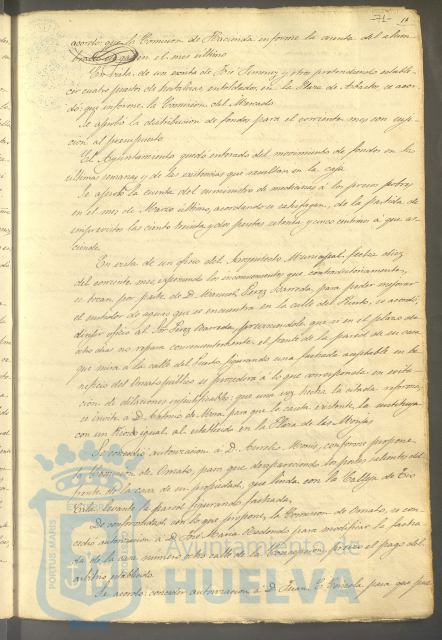 acordó que la Comisión de Hacienda informe la cuenta del alum-
brado de gas en el mes último
En vista de un escrito de José Jimenez y otros pretendiendo estable-
cer cuatro puestos de hortalizas, entoldados, en la Plaza de Abastos, se acor-
dó: que informe la Comisión del Mercado
Se aprobó la distribución de fondos para el corriente mes con suje-
ción al presupuesto
El Ayuntamiento quedó enterado del movimiento de fondos en las
últimas semanas y de las existencias que resultan en la caja
Se aprobó la cuenta del suministro de medicinas a los presos pobres
en el mes de Marzo último, acordando se satisfagan, de la partida de
imprevistos las ciento treinta y dos pesetas setenta y cinco centimos á que as-
ciende
En vista de un oficio del Arquitecto Municipal, fecha diez
del corriente mes, exponiendo los inconvenientes que
se tocan por parte de D. Manuel Perez Barreda, para poder mejorar
el de aguas que se encuentra en la calle del Puerto, se acordó:
dirigir oficio al Sr. Perez Barreda, previniendole que si en el plazo de
ocho dias no repara convenientemente el frente de la pared de su casa
que mira a la calle del Puerto, figurando una fachada aceptable en be-
neficio del Ornato publico se procederá á lo que corresponda en evita-
ción de dilaciones injustificables: que una vez hecha la citada reforma
se invite á D. Antonio de Mora para que la caseta existente, la sustituya
con un Kiosco igual al establecido en la Plaza de las Monjas
Se concedió autorización á D. Aurelio, conforme propone
la Comisión de Ornato, para que desapareciendo los postes salientes del
frente de la casa de su propiedad, que linda con la Calleja de
levante la pared figurando fachada,
De conformidad con lo que propone, la Comisión de Ornato, se con-
cedió autorización á D. José Maria Redondo para modificar la facha-
da de la casa número ocho calle de la Concepción previo el pago del
arbitrio establecido.
Se acordó: conceder autorización á D. Juan para que pue-
PORTUS MARIS
Ayuntamiento de
HUELVA